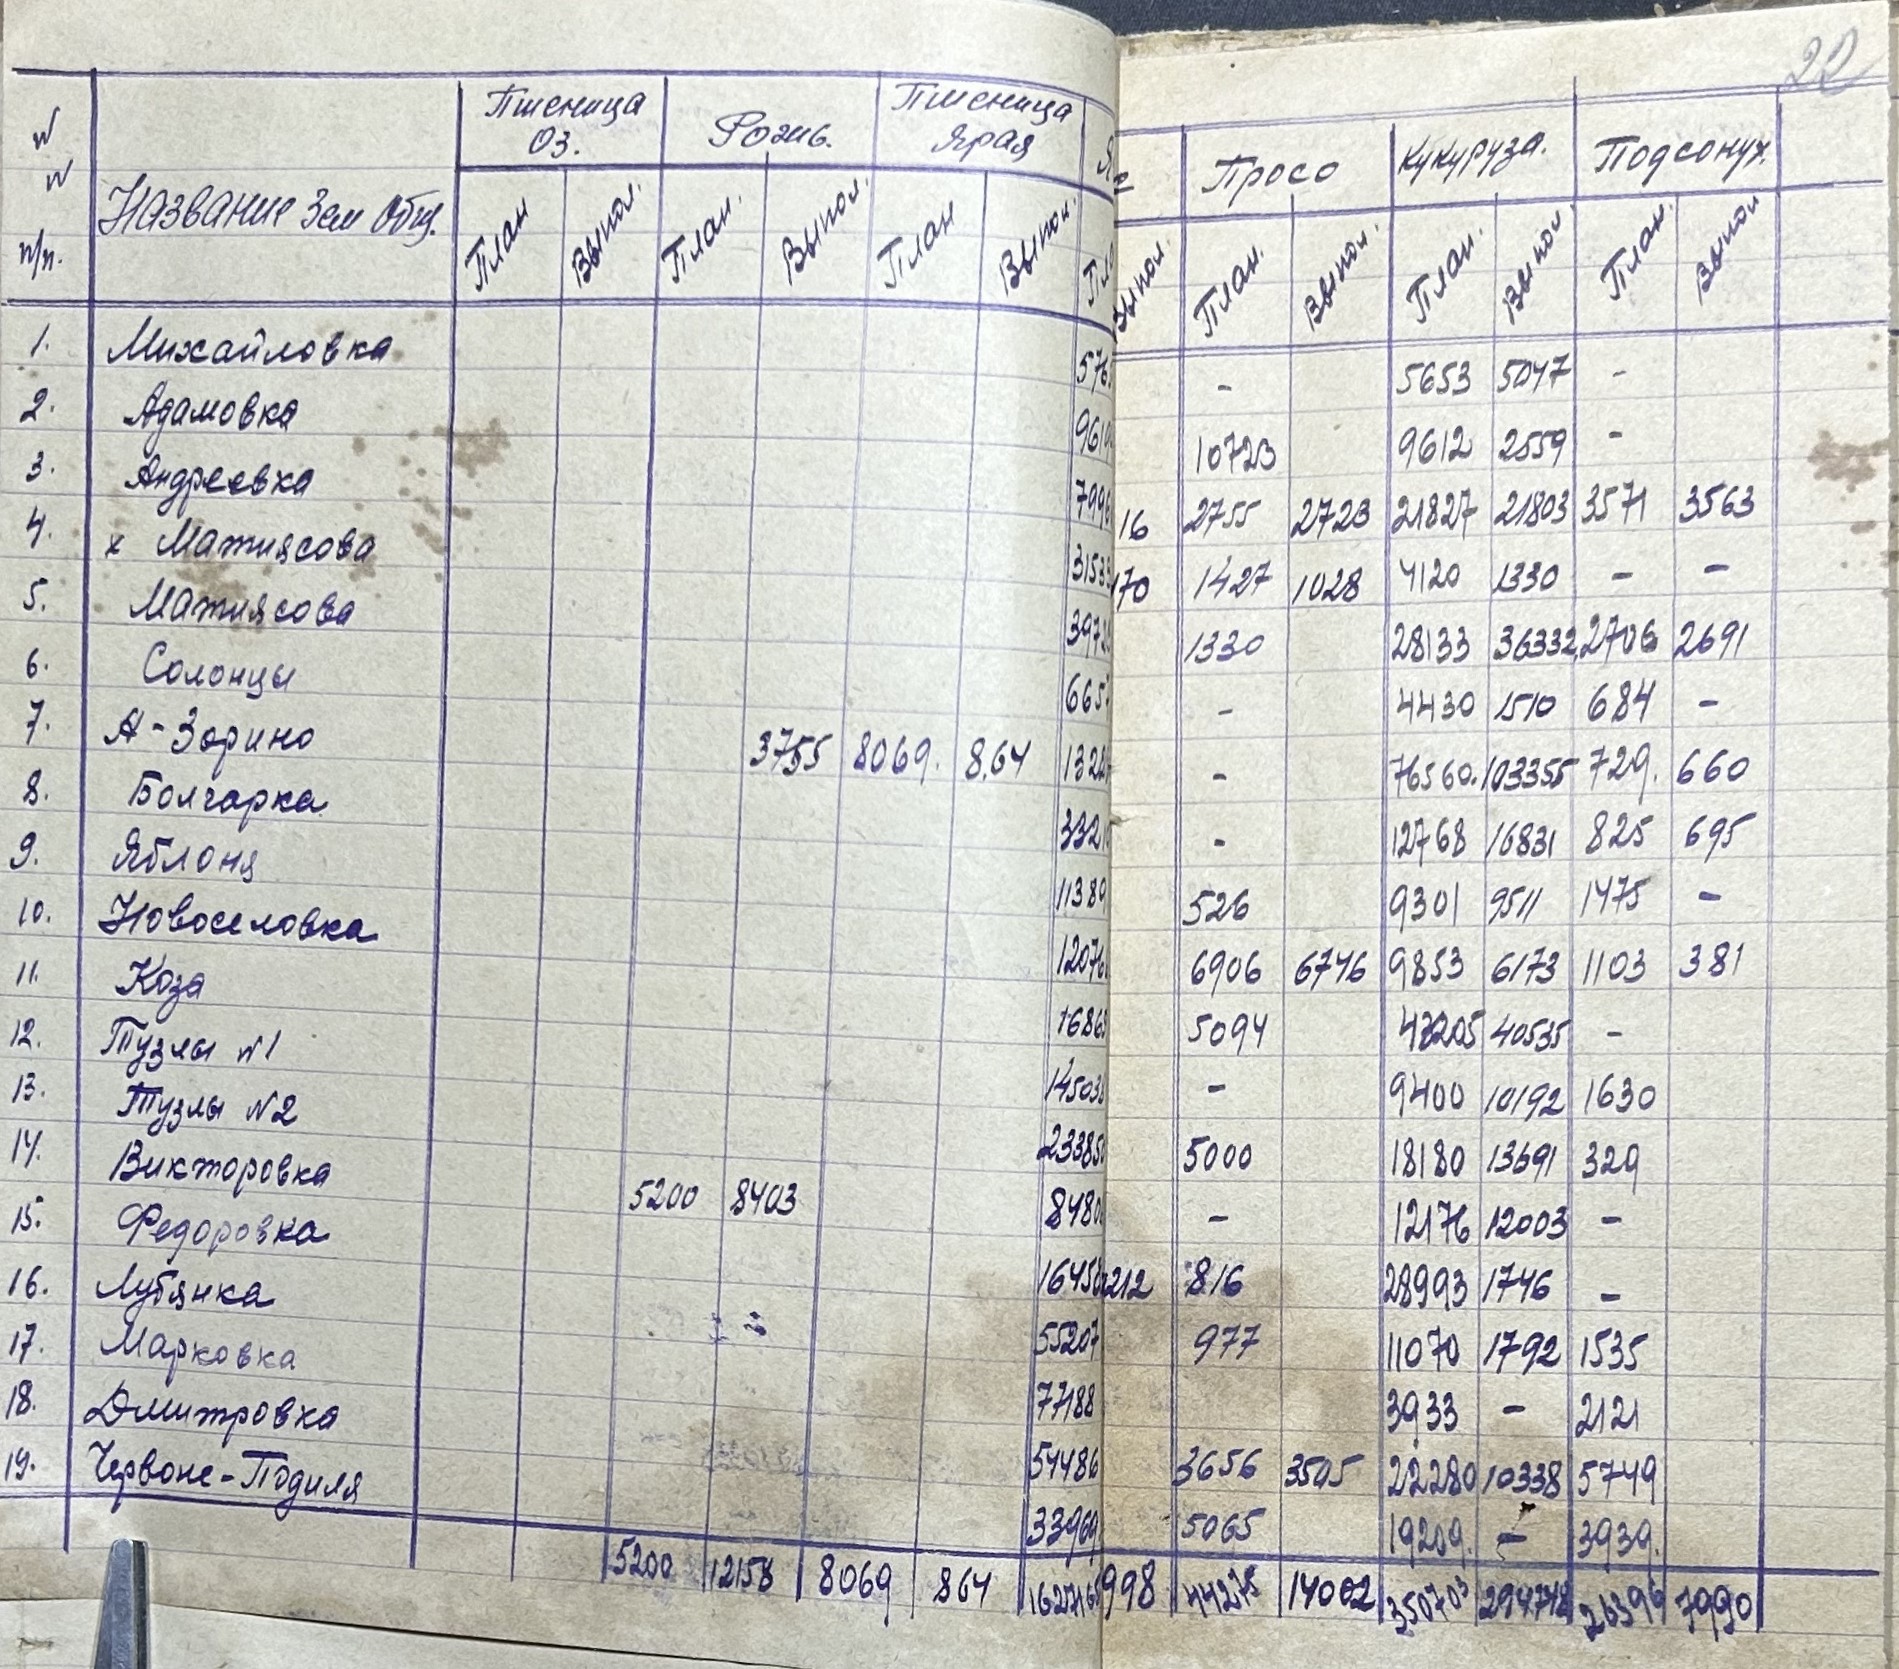 22
№ № п/п. Название Зем Общ. Пшеница Оз. Рожь. Пшеница Ярая Просо Кукуруза. Подсонух.
План Выпол. План. Выпол. План Выпол. Выпол. План. Выпол. План. Выпол. План. Выпол
1. Михайловка 576 - 5653 5047 -
2. Адамовка 961 10723 9612 2559 -
3. Андреевка 7996 16 2755 2723 21827 21803 3571 3563
4. х Матиясова 3153 170 1427 1028 4120 1330 - -
5. Матиясова 397 1330 28133 36332 2706 2691
6. Солонцы 665 - 4430 1510 684 -
7. А-Зорино 3755 8069. 8.64 132 - 76560. 103355 729. 660
8. Болгарка 332 - 12768 16831 825 695
9. Яблоня 1138 526 9301 9511 1475 -
10. Новоселовка 12076 6906 6746 9853 6173 1103 381
11. Коза 1686 5094 40535 -
12. Тузлы №1 14503 - 9400 10192 1630
13. Тузлы №2 23385 5000 18180 13691 329
14. Викторовка 5200 8403 8480 - 12176 12003 -
15. Федоровка 1645 212 816 28993 1746 -
16. Лубянка 55207 977 11070 1792 1535
17. Марковка 77188 3933 - 2121
18. Дмитровка 54486 3656 3505 22280 10338 5749
19. Червоне-Подиля 33969 5065 19209. - 3939.
5200 12158 8069 864 998 44275 14002 350703 294748 26396 7990